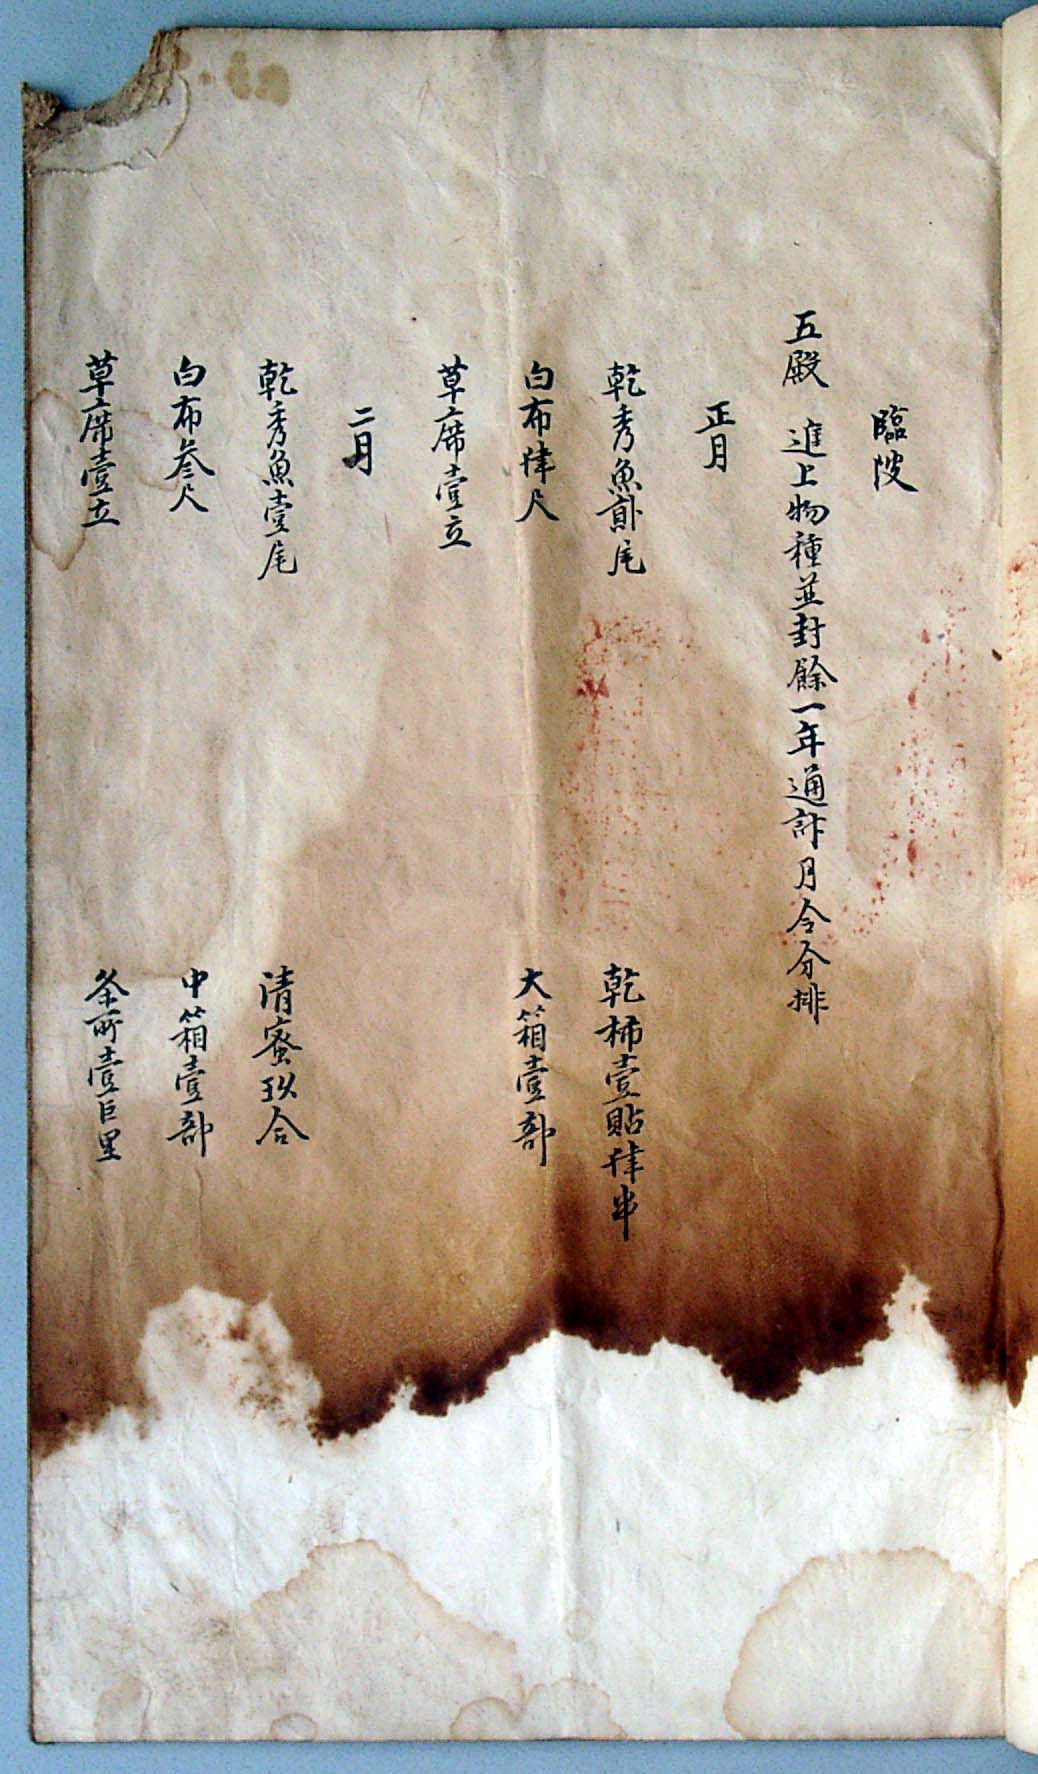 臨陂
五殿 進上物種並封餘一年通計月令分排
正月
乾秀魚貳尾 乾柿壹貼肆串
白布肆尺 大箱壹部
草席壹立
二月
乾秀魚壹尾 清蜜玖合
白布叁尺 中箱壹部
草席壹立 条所壹巨里